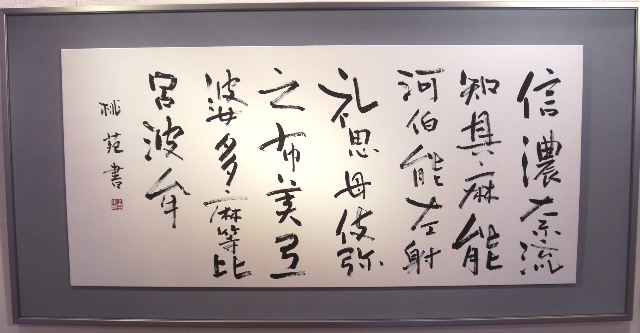 信濃奈流
知具麻能
河伯能左射
礼思母伎弥
之布美弖
婆多麻等比
呂波牟
桃苑書